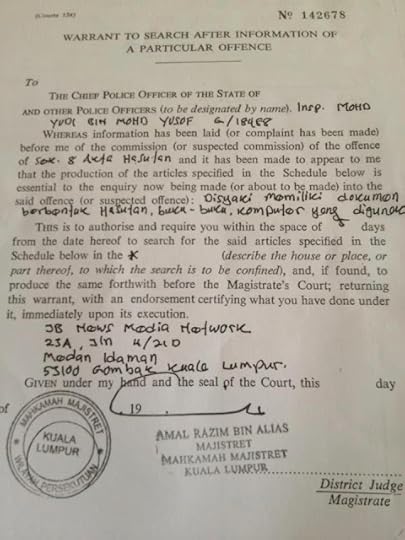 (Courts 136)
Nº 142678
WARRANT TO SEARCH AFTER INFORMATION OF
A PARTICULAR OFFENCE
To
THE CHIEF POLICE OFFICER OF THE STATE OF
AND OTHER POLICE OFFICERS (to be designated by name). Insp. MOHD
BIN MOHD YUSOF G/18488
WHEREAS information has been laid (or complaint has been made)
before me of the commission (or suspected commission) of the offence
of Sek. 8 Akta Hasutan and it has been made to appear to me
that the production of the articles specified in the Schedule below is
essential to the enquiry now being made (or about to be made) into the
said offence (or suspected offence): Disyaki memiliki dokumen
berbentuk Hasutan, buku-buku, komputer yang
THIS is to authorise and require you within the space of days
from the date hereof to search for the said articles specified in the
Schedule below in the * (describe the house or place, or
part thereof, to which the search is to be confined), and, if found, to
produce the same forthwith before the Magistrate's Court; returning
this warrant, with an endorsement certifying what you have done under
it, immediately upon its execution.
JB News Media Network
23A, Jln 4/21D
Medan Idaman
53100 Gombak Kuala Lumpur.
GIVEN under my hand and the seal of the Court, this day
of 19
MAHKAMAH MAJISTRET
KUALA
LUMPUR
WILAYAH PERSEKUTUAN
AMAL RAZIM BIN ALIAS
MAJISTRET
MAHKAMAH MAJISTRET
KUALA LUMPUR
District Judge
Magistrate